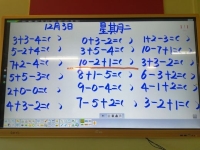 12月3日 星期二
3+3-4=( ) 0+3-2=( ) 1+2-3=( )
5-2+4=( ) 3+5-4=( ) 10-7+1=( )
7+2-4=( ) 10-2+1=( ) 3+3-2=( )
5+5-3=( ) 8+1-5=( ) 6-3+2=( )
2+0-0=( ) 9-0-4=( ) 4-1+2=( )
4+3-2=( ) 7-5+2=( ) 3-2+1=( )